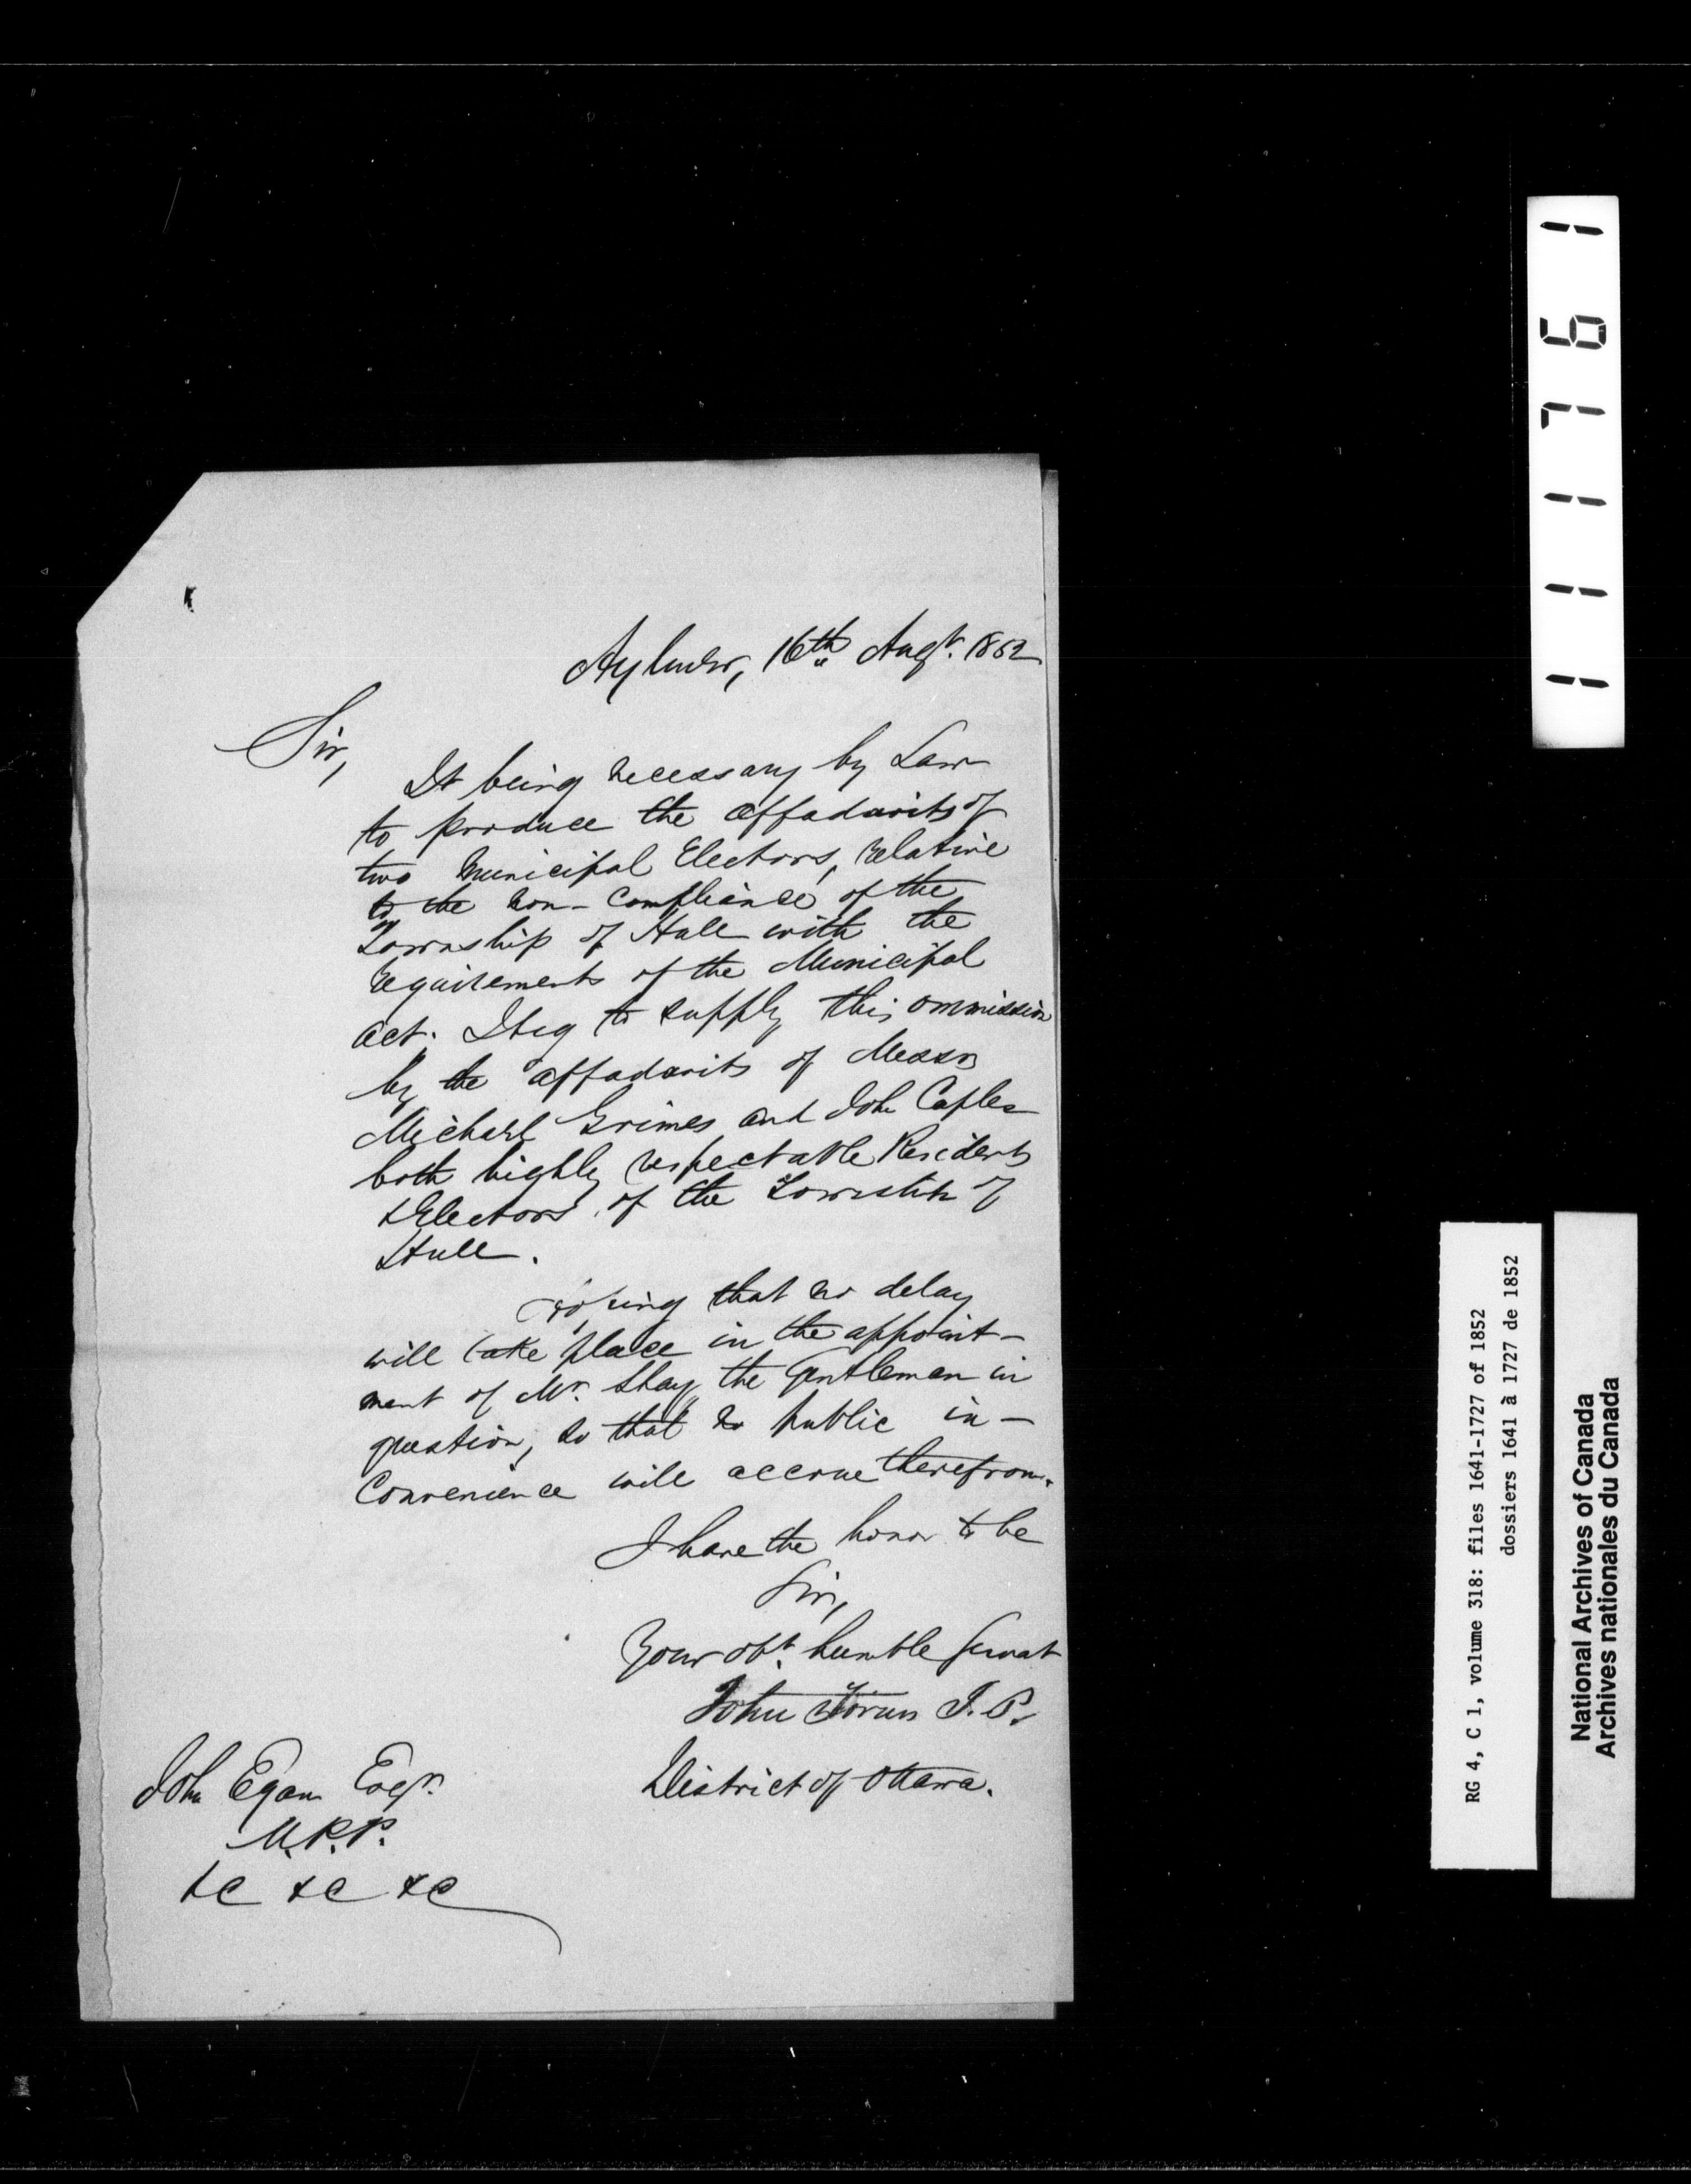 Aylmer, 16th Augt. 1852
Sir,
It being necessary by Law
to produce the affadavits of
two Municipal Electors, relative
to the non-compliance of the
Township of Hull with the
requirements of the Municipal
act. I beg to supply this ommission
by the affadavits of Messrs
Michael Grimes and John Caples
both highly respectable Residents
& Electors of the Township of
Hull.
Hoping that no delay
will take place in the appoint-
ment of Mr. Shay the Gentleman in
question, so that no public in-
convenience will accrue therefrom.
I have the honor to be
Sir,
Your obt. humble Servat
John Foran J.P.
District of Ottawa.
John Egan Esqr.
M.P.P.
&c &c &c
1 1 1 7 6 1
RG 4, C 1, volume 318: files 1641-1727 of 1852
dossiers 1641 à 1727 de 1852
National Archives of Canada
Archives nationales du Canada